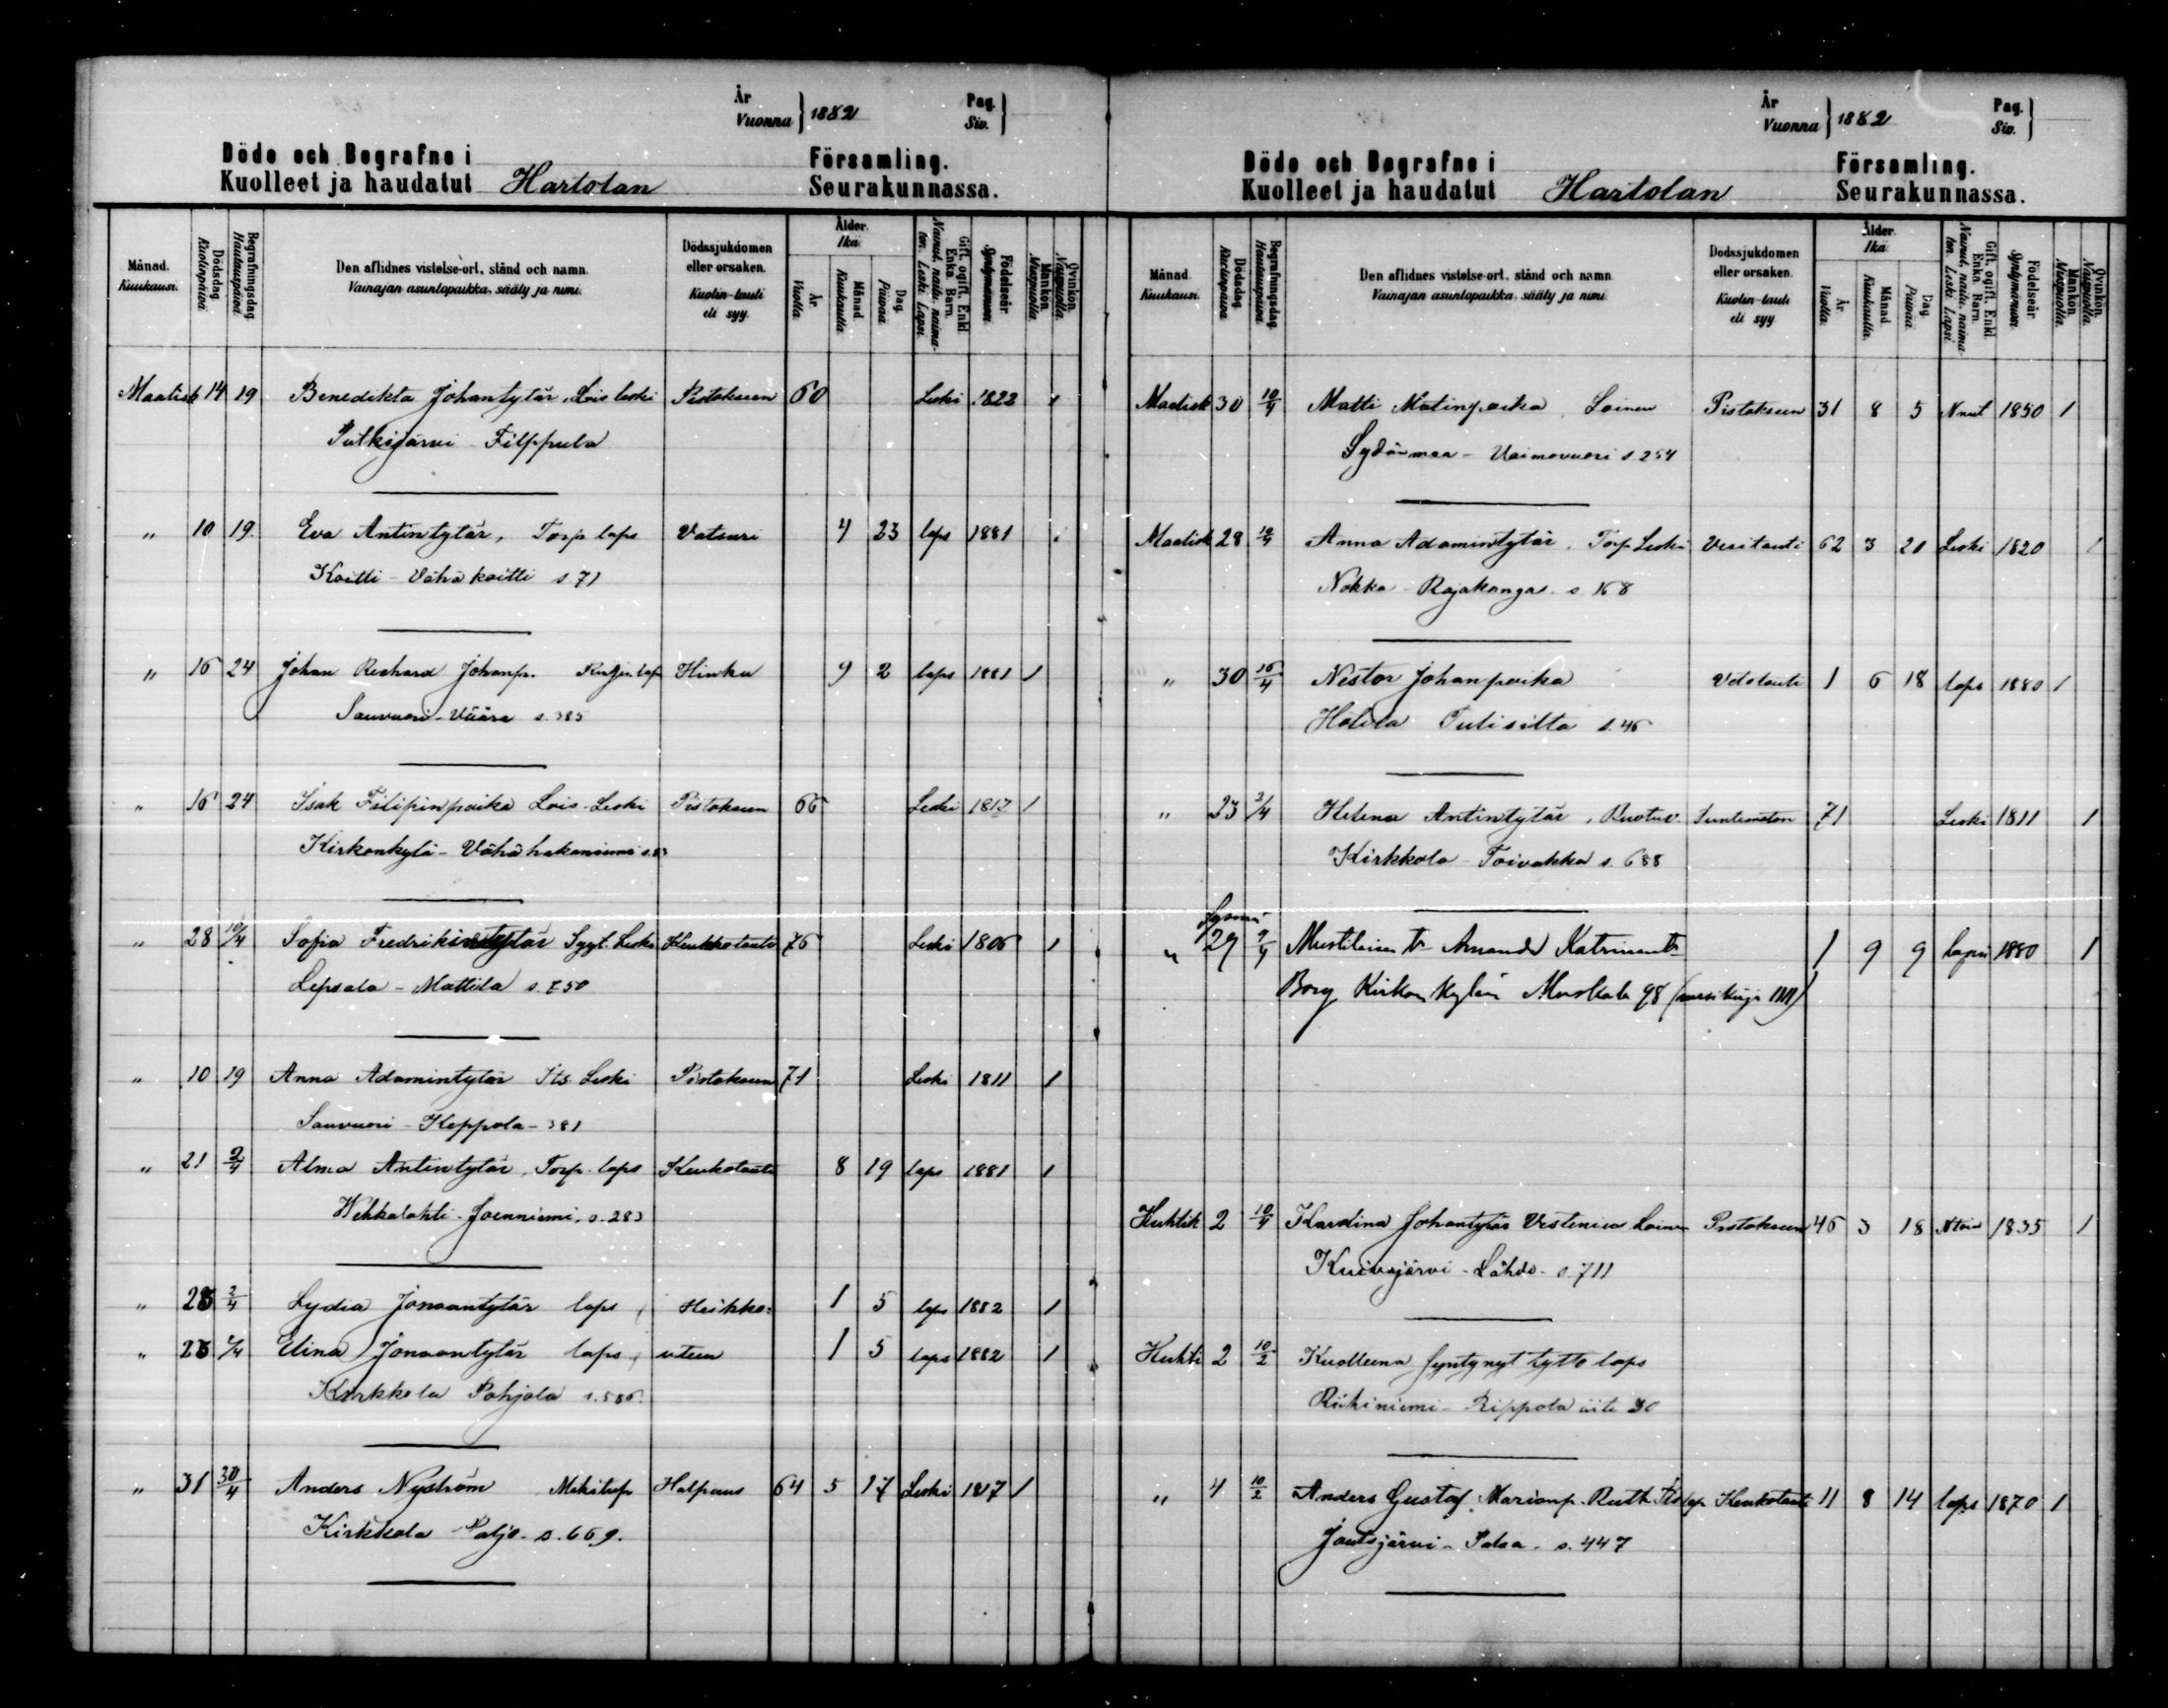 År
Vuonna } 1882
Pag.
Siv. }
Döde och Begrafne i
Kuolleet ja haudatut Hartolan
Församling.
Seurakunnassa.
Månad. Kuukausi.
Dödsdag. Kuolinpäivä
Begrafningsdag. Hautauspäivä
Den aflidnes vistelse-ort, stånd och namn.
Vainajan asuntopaikka, sääty ja nimi.
Dödssjukdomen eller orsaken.
Kuolin-tauti eli syy.
Ålder. Ikä.
År Vuotta.
Månad. Kuukautta.
Dag. Päivää
Gift, ogift, Enkl. Enka. Barn.
Nainut, naitu, naimaton. Leski. Lapsi.
Födelseår. Syntymävuosi.
Mankön. Miespuolta.
Qvinkön. Naispuolta.
Maalisk 14 19 Benedikta Johantytär, Lois leski Pistoksen 60 Leski 1822 1
Putkijärvi Filppula
" 10 19. Eva Antintytär, Torp. laps Vatsuri 4 23 laps 1881 1
Koitti - Vähä koitti s 71
" 16 24 Johan Richard Johanp. laps Hinku 9 2 laps 1881 1
Sauvuori - Väära s. 385
" 16 24 Isak Filipinpoika Lois-Leski Pistoksen 65 Leski 1817 1
Kirkonkylä - Vähähakaniemi
" 28 10/4 Sofia Fredrikintytär Syyt. Leski Keuhkotauti 76 Leski 1806 1
Lepsala - Mattila s. 750
" 10 19 Anna Adamintytär Its. Leski Pistoksen 71 Leski 1811 1
Sauvuori - Keppola - 381
" 21 2/4 Alma Antintytär, Torp. laps Keuhotauti 8 19 laps 1881 1
Wehkalahti - Joenniemi, s. 283
" 2/4 Lydia Jonaantytär laps, Heikko- 1 5 laps 1882 1
" Elina Jonaantytär laps, uteen 1 5 laps 1882 1
Kirkkola Pohjola s. 586.
" 31 30/4 Anders Nyström Halpaus 64 5 17 Leski 1817 1
Kirkkola Paljo - s. 669.
År
Vuonna } 1882
Pag.
Siv. }
Döde och Begrafne i
Kuolleet ja haudatut Hartolan
Församling.
Seurakunnassa.
Månad Kuukausi.
Dödsdag. Kuolinpäivä
Begrafningsdag. Hautauspäivä.
Den aflidnes vistelse-ort, stånd och namn
Vainajan asuntopaikka, sääty ja nimi
Dödssjukdomen eller orsaken.
Kuolin-tauti eli syy
Ålder. Ikä
År Vuotta.
Månad. Kuukautta.
Dag. Päivää.
Gift, ogift, Enkl. Enka. Barn.
Nainut, naitu, naimaton. Leski. Lapsi.
Födelseår. Syntymävuosi.
Mankön. Miespuolta.
Qvinkön. Naispuolta.
Maalisk 30 10/4 Matti Matinpoika, Loinen Pistoksen 31 8 5 Nnut 1850 1
Sydänmaa - Vaimovuori s. 254
Maalisk 28 Anna Adamintytär, Torp Leski Veritauti 62 3 20 Leski 1820 1
Nokka - Rajakangas s. 168
" 30 16/4 Nestor Johanpoika Vetotauti 1 6 18 laps 1880 1
Hölilä Tulisilta s. 46
" 23 2/4 Helena Antintytär, Ruotuv. Tuntematon 71 Leski 1811 1
Kirkkola - Toivakka s. 688
" 29 9/4 Mustilaisen tr Amanda Katrinant. 1 9 9 Lapsi 1880 1
Borg Kirkon kylän 98
Huhtik 2 10/4 Karolina Johantytär Vestenius Loinen Pistoksen 46 3 18 1835 1
Kuivajärvi - Lähde - s. 711
Huhti 2 10/2 Kuolleena syntynyt tyttö laps
Riihiniemi - Rippola äiti 30
" 4 10/2 Anders Gustaf, Marianp. Ruth Keuhotauti 11 8 14 laps 1870 1
Joutsjärvi - Salaa - s. 447